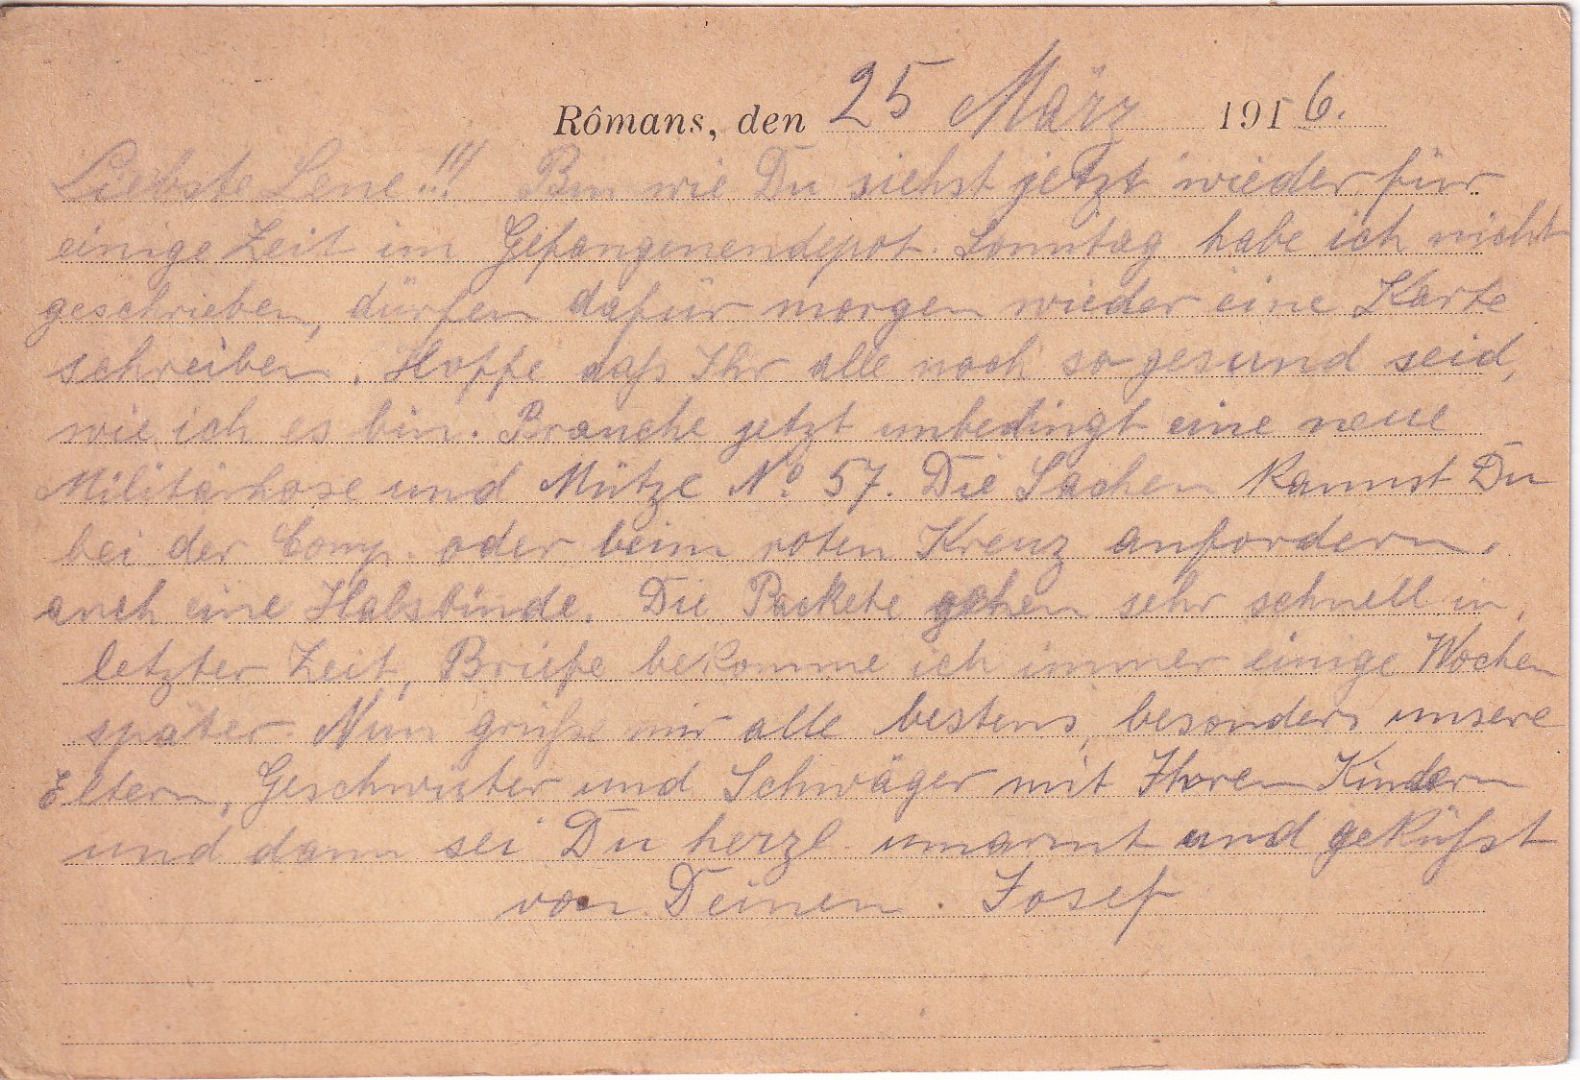 Rômans, den 25 März 1916.
Liebste Lene!!! Bin wie Du siehst jetzt wieder für
einige Zeit im Gefangenendepot. Sonntag habe ich nicht
geschrieben, dürfen dafür morgen wieder eine Karte
schreiben. Hoffe daß Ihr alle noch so gesund seid,
wie ich es bin. Brauche jetzt unbedingt eine neue
Militärhose und Mütze No. 57. Die Sachen kannst Du
bei der Comp. oder beim roten Kreuz anfordern,
auch eine Halsbinde. Die Packete gehen sehr schnell in
letzter Zeit, Briefe bekomme ich immer einige Wochen
später Nun grüße mir alle bestens, besonders unsere
Eltern, Geschwister und Schwäger mit Ihren Kindern
und dann sei Du herzl umarmt und geküßt
von Deinen. Josef